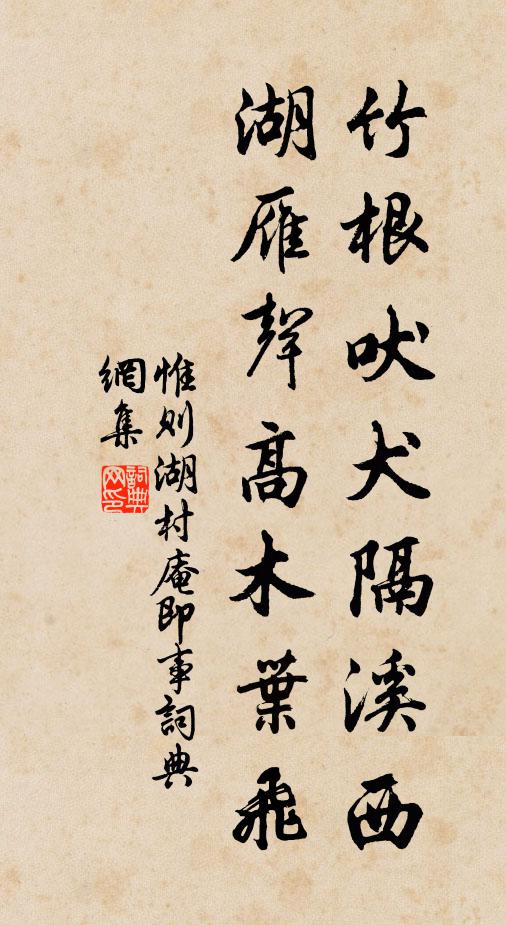 竹根吠犬隔溪西
湖雁聲高木葉飛
惟則湖村庵即事詞典
網集
詞典
网印